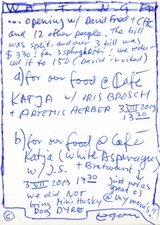 WAITING
... opening w/ David Ford + CHE
and 12 other people. The bill
was split and our 3 bill was
$ 330! for 3 spaghetti! we redu-
ced it to 150 (David invited)
a) for our food @ Café
KATJA w/ IRIS BROSCH
+ ARTEMIS HERBER 3 VII 2013
17 30
b) for our food @ Café
Katja (white Asparagus
w/ J.S. + Bratwurst)
3 VII 2013 17 30
we did NOT
bring Mini Husky
Dog DYRE
just
great
@ my
©